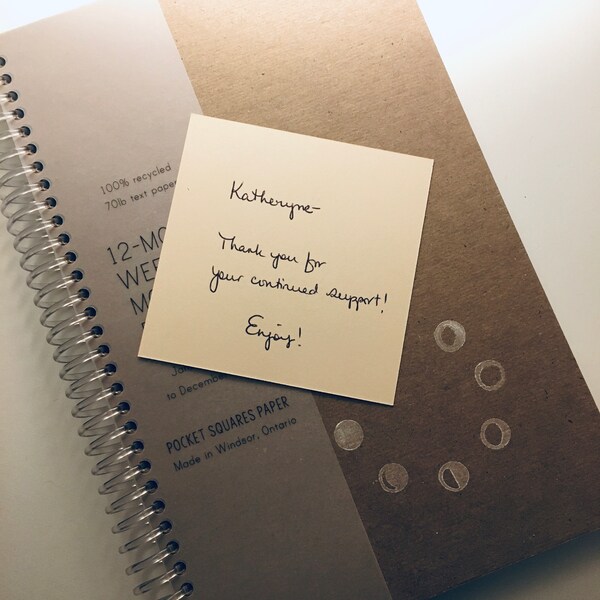 100% recycled
70lb text paper
12-MO
WEE
MO
Ja
to December
POCKET SQUARES PAPER
Made in Windsor, Ontario
Katheryne-
Thank you for
your continued support!
Enjoy!